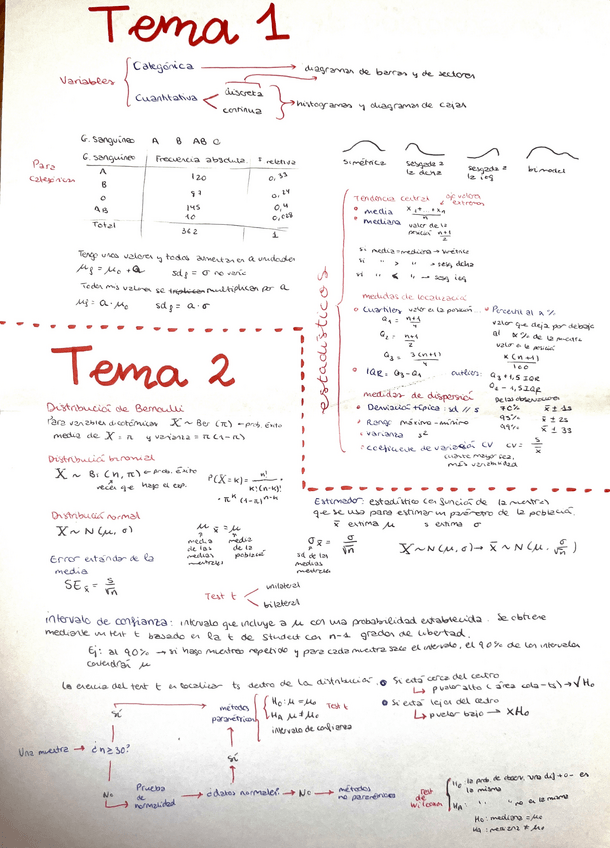 Tema 1
Variables
Categórica → diagramas de barras y de sectores
Cuantitativa < discreta
continua → histogramas y diagramas de cajas
G. sanguíneo A B AB O
Para categóricas
G. sanguíneo Frecuencia absoluta f relativa
A 120 0,33
B 87 0,24
O 145 0,4
AB 10 0,028
Total 362 1
Tengo unos valores y todos aumentan en a unidades
μf = μ0 + a sdf = σ no varía
Todos mis valores se multiplican por a
μf = a · μ0 sdf = a · σ
simétrica sesgada a la dcha sesgada a la izq bimodal
estadísticos
Tendencia central ojo valores extremos
media x1+...+xn / n
mediana valor de la posición n+1 / 2
si media = mediana → simétrica
si " > " → sesg dcha
si " < " → sesg izq
medidas de localización
Cuartiles valor a la posición...
Q1 = n+1 / 4
Q2 = n+1 / 2
Q3 = 3(n+1) / 4
Percentil al x%
valor que deja por debajo
al x% de la muestra
valor a la posición
x(n+1) / 100
IQR = Q3 - Q1 outlier: Q3 + 1,5 IQR
Q1 - 1,5 IQR
medidas de dispersión
Desviación típica: sd // s
Rango máximo - mínimo
varianza s²
coeficiente de variación CV CV = s / x̄
cuanto mayor sea,
más variabilidad
De las observaciones
70% x̄ ± 1s
95% x̄ ± 2s
99% x̄ ± 3s
Tema 2
Distribución de Bernoulli
Para variables dicotómicas X ~ Ber (π) ← prob. éxito
media de X = π y varianza = π(1-π)
Distribución binomial
X ~ Bi (n, π) ← prob. éxito
veces que hago el exp.
P(X=k) = n! / k!(n-k)!
· π^k (1-π)^n-k
Distribución normal
X ~ N(μ, σ)
μx̄ = μ
media de las medias muestrales
media de la población
σx̄ = σ / √n
sd de las medias muestrales
Error estándar de la media
SEx̄ = s / √n
Estimador: estadístico en función de la muestra
que se usa para estimar un parámetro de la población.
x̄ estima μ s estima σ
X ~ N(μ, σ) → x̄ ~ N(μ, σ / √n)
Test t < unilateral
bilateral
intervalo de confianza: intervalo que incluye a μ con una probabilidad establecida. Se obtiene
mediante un test t basado en la t de Student con n-1 grados de libertad.
Ej: al 90% → si hago muestreo repetido y para cada muestra saco el intervalo, el 90% de los intervalos
contendrán μ
La esencia del test t es localizar ts dentro de la distribución.
Si está cerca del centro
↳ pvalor alto (área cola-ts) → √H0
Si está lejos del centro
↳ pvalor bajo → xH0
Una muestra → ¿n≥30?
Sí
métodos paramétricos
H0: μ = μ0 Test t
HA: μ ≠ μ0
intervalo de confianza
Sí
No
Prueba de normalidad → ¿datos normales? → No → métodos no paramétricos
Test de Wilcoxon
H0: la prob. de observ. una dif + o - es
la misma
HA: " " no es la misma
H0: mediana = μ0
HA: mediana ≠ μ0